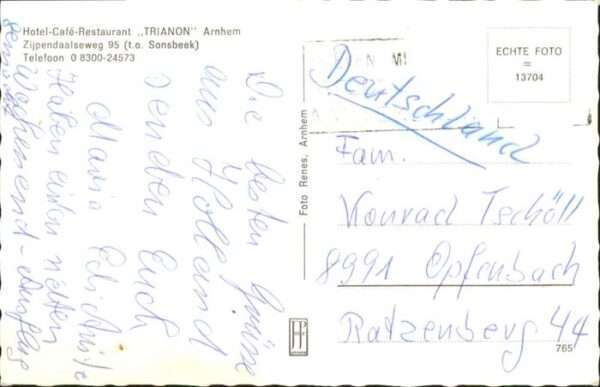 Hotel-Café-Restaurant „TRIANON" Arnhem
Zijpendaalseweg 95 (t.o. Sonsbeek)
Telefoon 0 8300-24573
Die besten Grüsse
aus Holland
senden Euch
Maria
Haben einen netten
Wochenend-Ausflug
Foto Renes, Arnhem
ECHTE FOTO
=
13704
Deutschland
Fam.
Konrad Tschöll
8991 Opfenbach
Ratzenberg 44
765